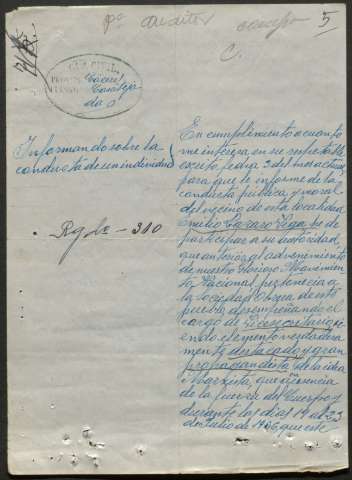 pº Auditor
5
C.
Gª CIVIL
Cáceres
Informando sobre la
conducta de un individuo
Rgle - 310
En cumplimiento a cuanto
me interesa en su respetable
escrito fecha 2 del mes actual,
para que le informe de la
conducta pública y moral
del vecino de esta localidad
Emilio Lazaro Vega, he de
participar a su autoridad,
que anterior al advenimiento
de nuestro Glorioso Movimien
to Nacional, pertenecia a
la Sociedad Obrera de este
pueblo desempeñando el
cargo de Vicesecretario si
endo elemento verdadera
mente destacado y gran
propagandista de la idea
Marxista, que a ausencia
de la fuerza del Cuerpo y
durante los dias 19 al 23
de Julio de 1936, que este